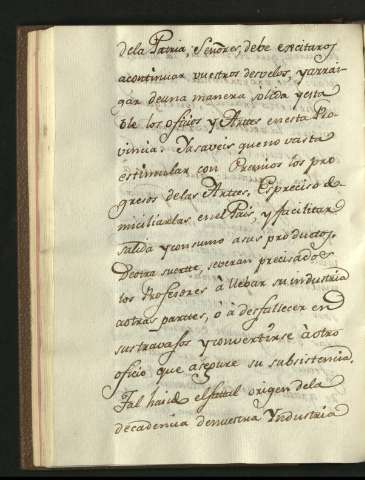 dela Patria, Señores, debe excitaros
acontinuar vuestros desvelos, yarrai-
gar deuna manera sólida yesta
ble los oficios y Artes enesta Pro
vincia. Yasaveis queno vasta
estimular con Premios los pro
gresos delas Artes. Espreciso do
miciliarlas enel Pais, y facilitar
salida yconsumo asus productos.
Deotra suerte, severan precisados
los Profesores à llebar su industria
aotras partes, ò à desfallecer en
sustravajos yconvertirse àotro
oficio que asegure su subsistencia.
Tal ha elfatal origen dela
decadencia denuestra Yndustria